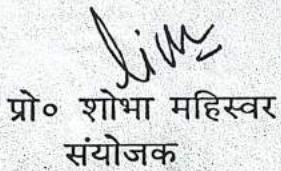 प्रो० शोभा महिस्वर
संयोजक